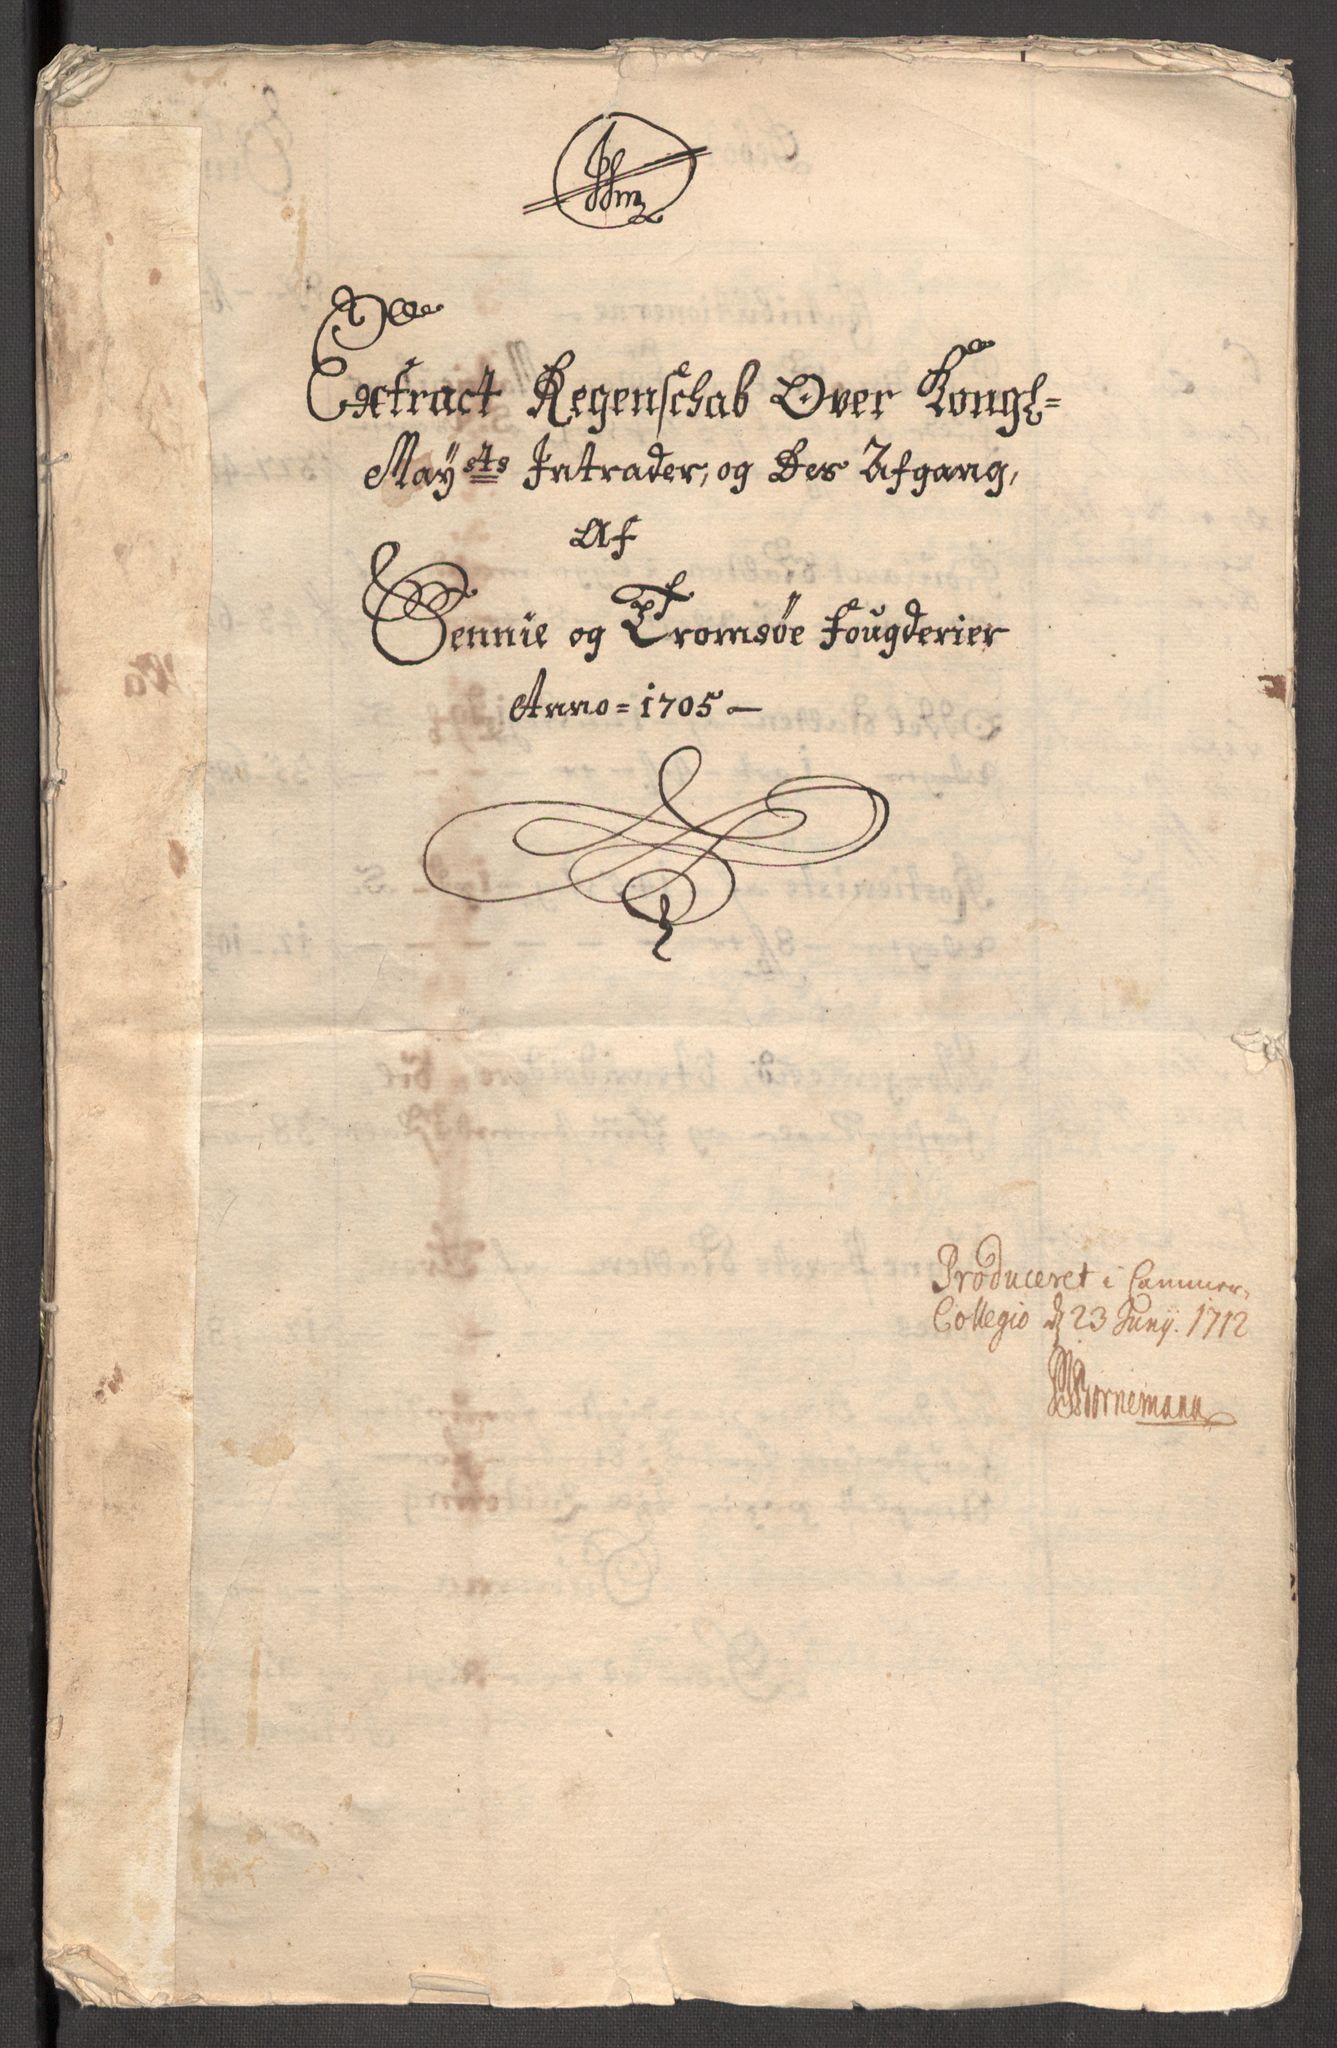 Extract Regenschab Over Kongl=
Maysts Intrader, og Des Afgang,
Af
Sennie og Tromsøe fougderier
Anno = 1705 —
Produceret i Cammer-
Collegio d 23 Junÿ. 1712
Bornemann